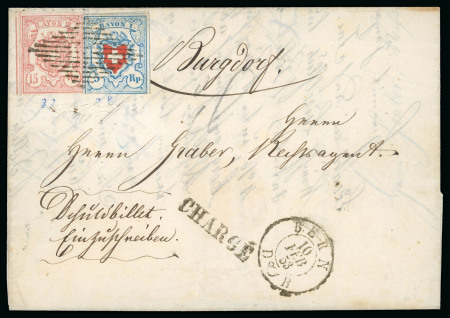 RAYON III RAYON I
15 5 Rp.
Burgdorf.
Herrn
Herrn Graber, Rechtsagent.
Schuldbillet.
Einzuschreiben.
CHARGÉ
BERN
10
FEB
53